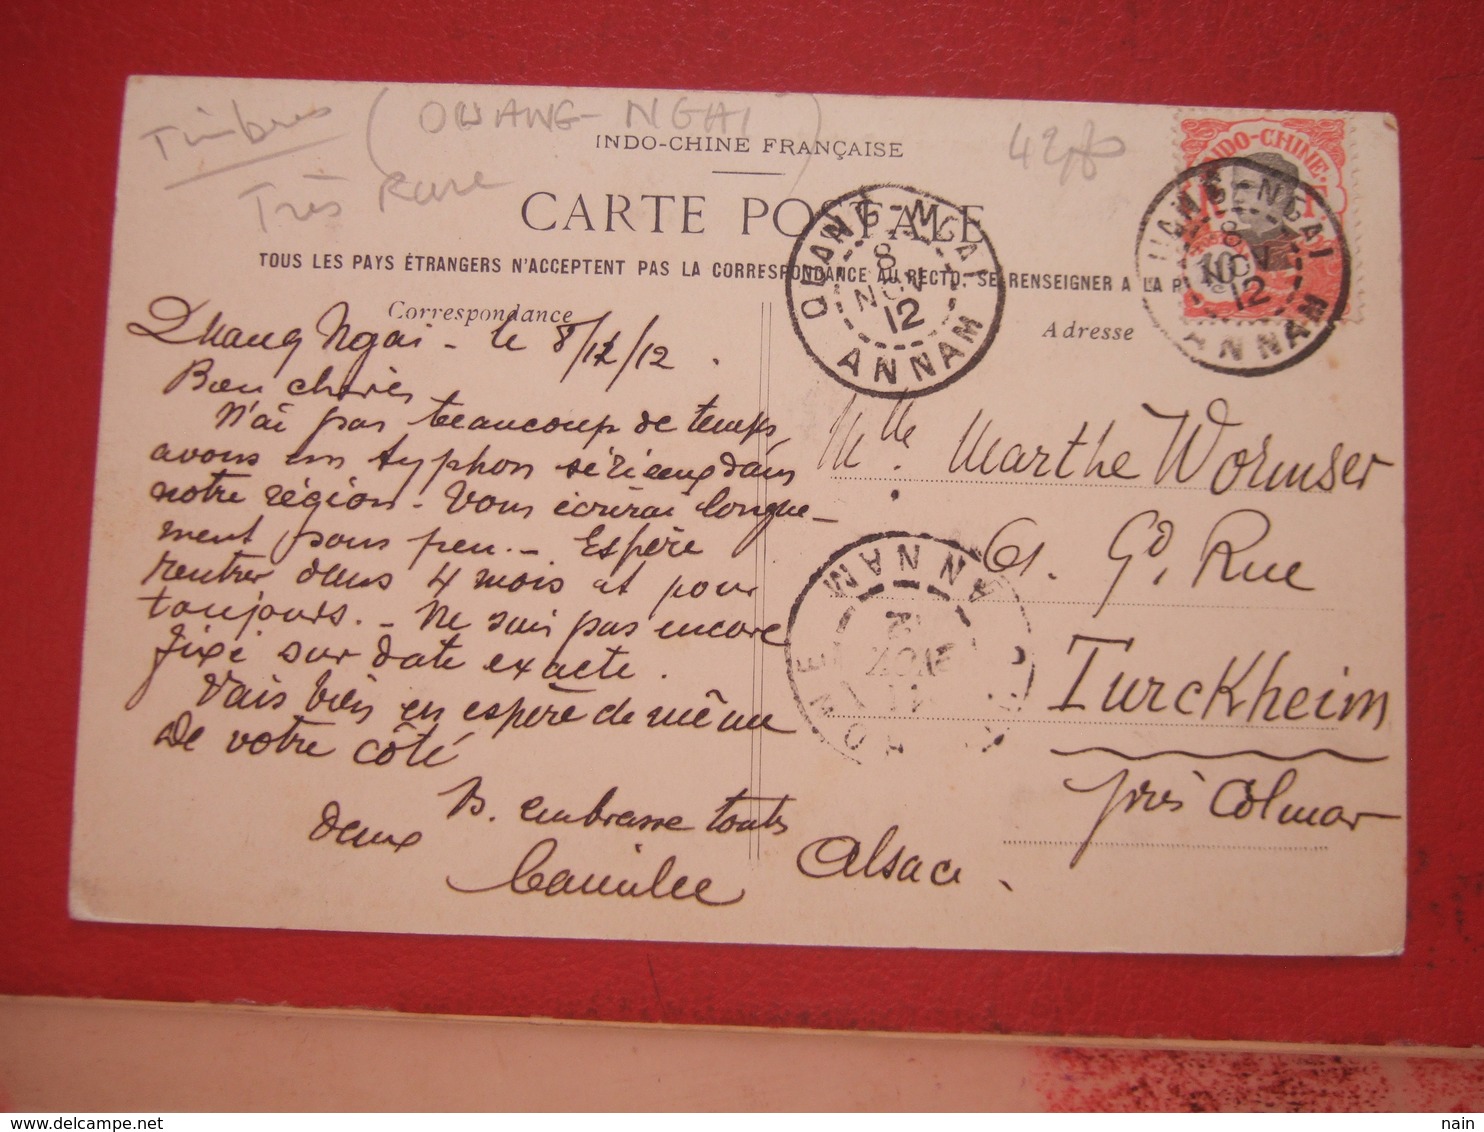 Timbres (OUANG-NGAI)
Très Rare
INDO-CHINE FRANÇAISE
CARTE POSTALE
TOUS LES PAYS ÉTRANGERS N'ACCEPTENT PAS LA CORRESPONDANCE AU RECTO. SE RENSEIGNER A LA P
Correspondance
Adresse
INDO-CHINE
10
QUANG-NGAI
8
NOV
12
ANNAM
QUANG-NGAI
8
NOV
12
ANNAM
Quang Ngai - le 8/11/12.
Bien chères
N'ai pas beaucoup de temps,
avons un typhon sérieux dans
notre région - Vous écrirai longue-
ment sous peu. - Espère
rentrer dans 4 mois et pour
toujours. - Ne suis pas encore
fixé sur date exacte.
Vais bien en espère de même
de votre côté
B. embrasse toutes
deux
Camille
Mlle. Marthe Wormser
61. Gd. Rue
Turckheim
près Colmar
Alsace.
ANNAM
TOURANE
nain